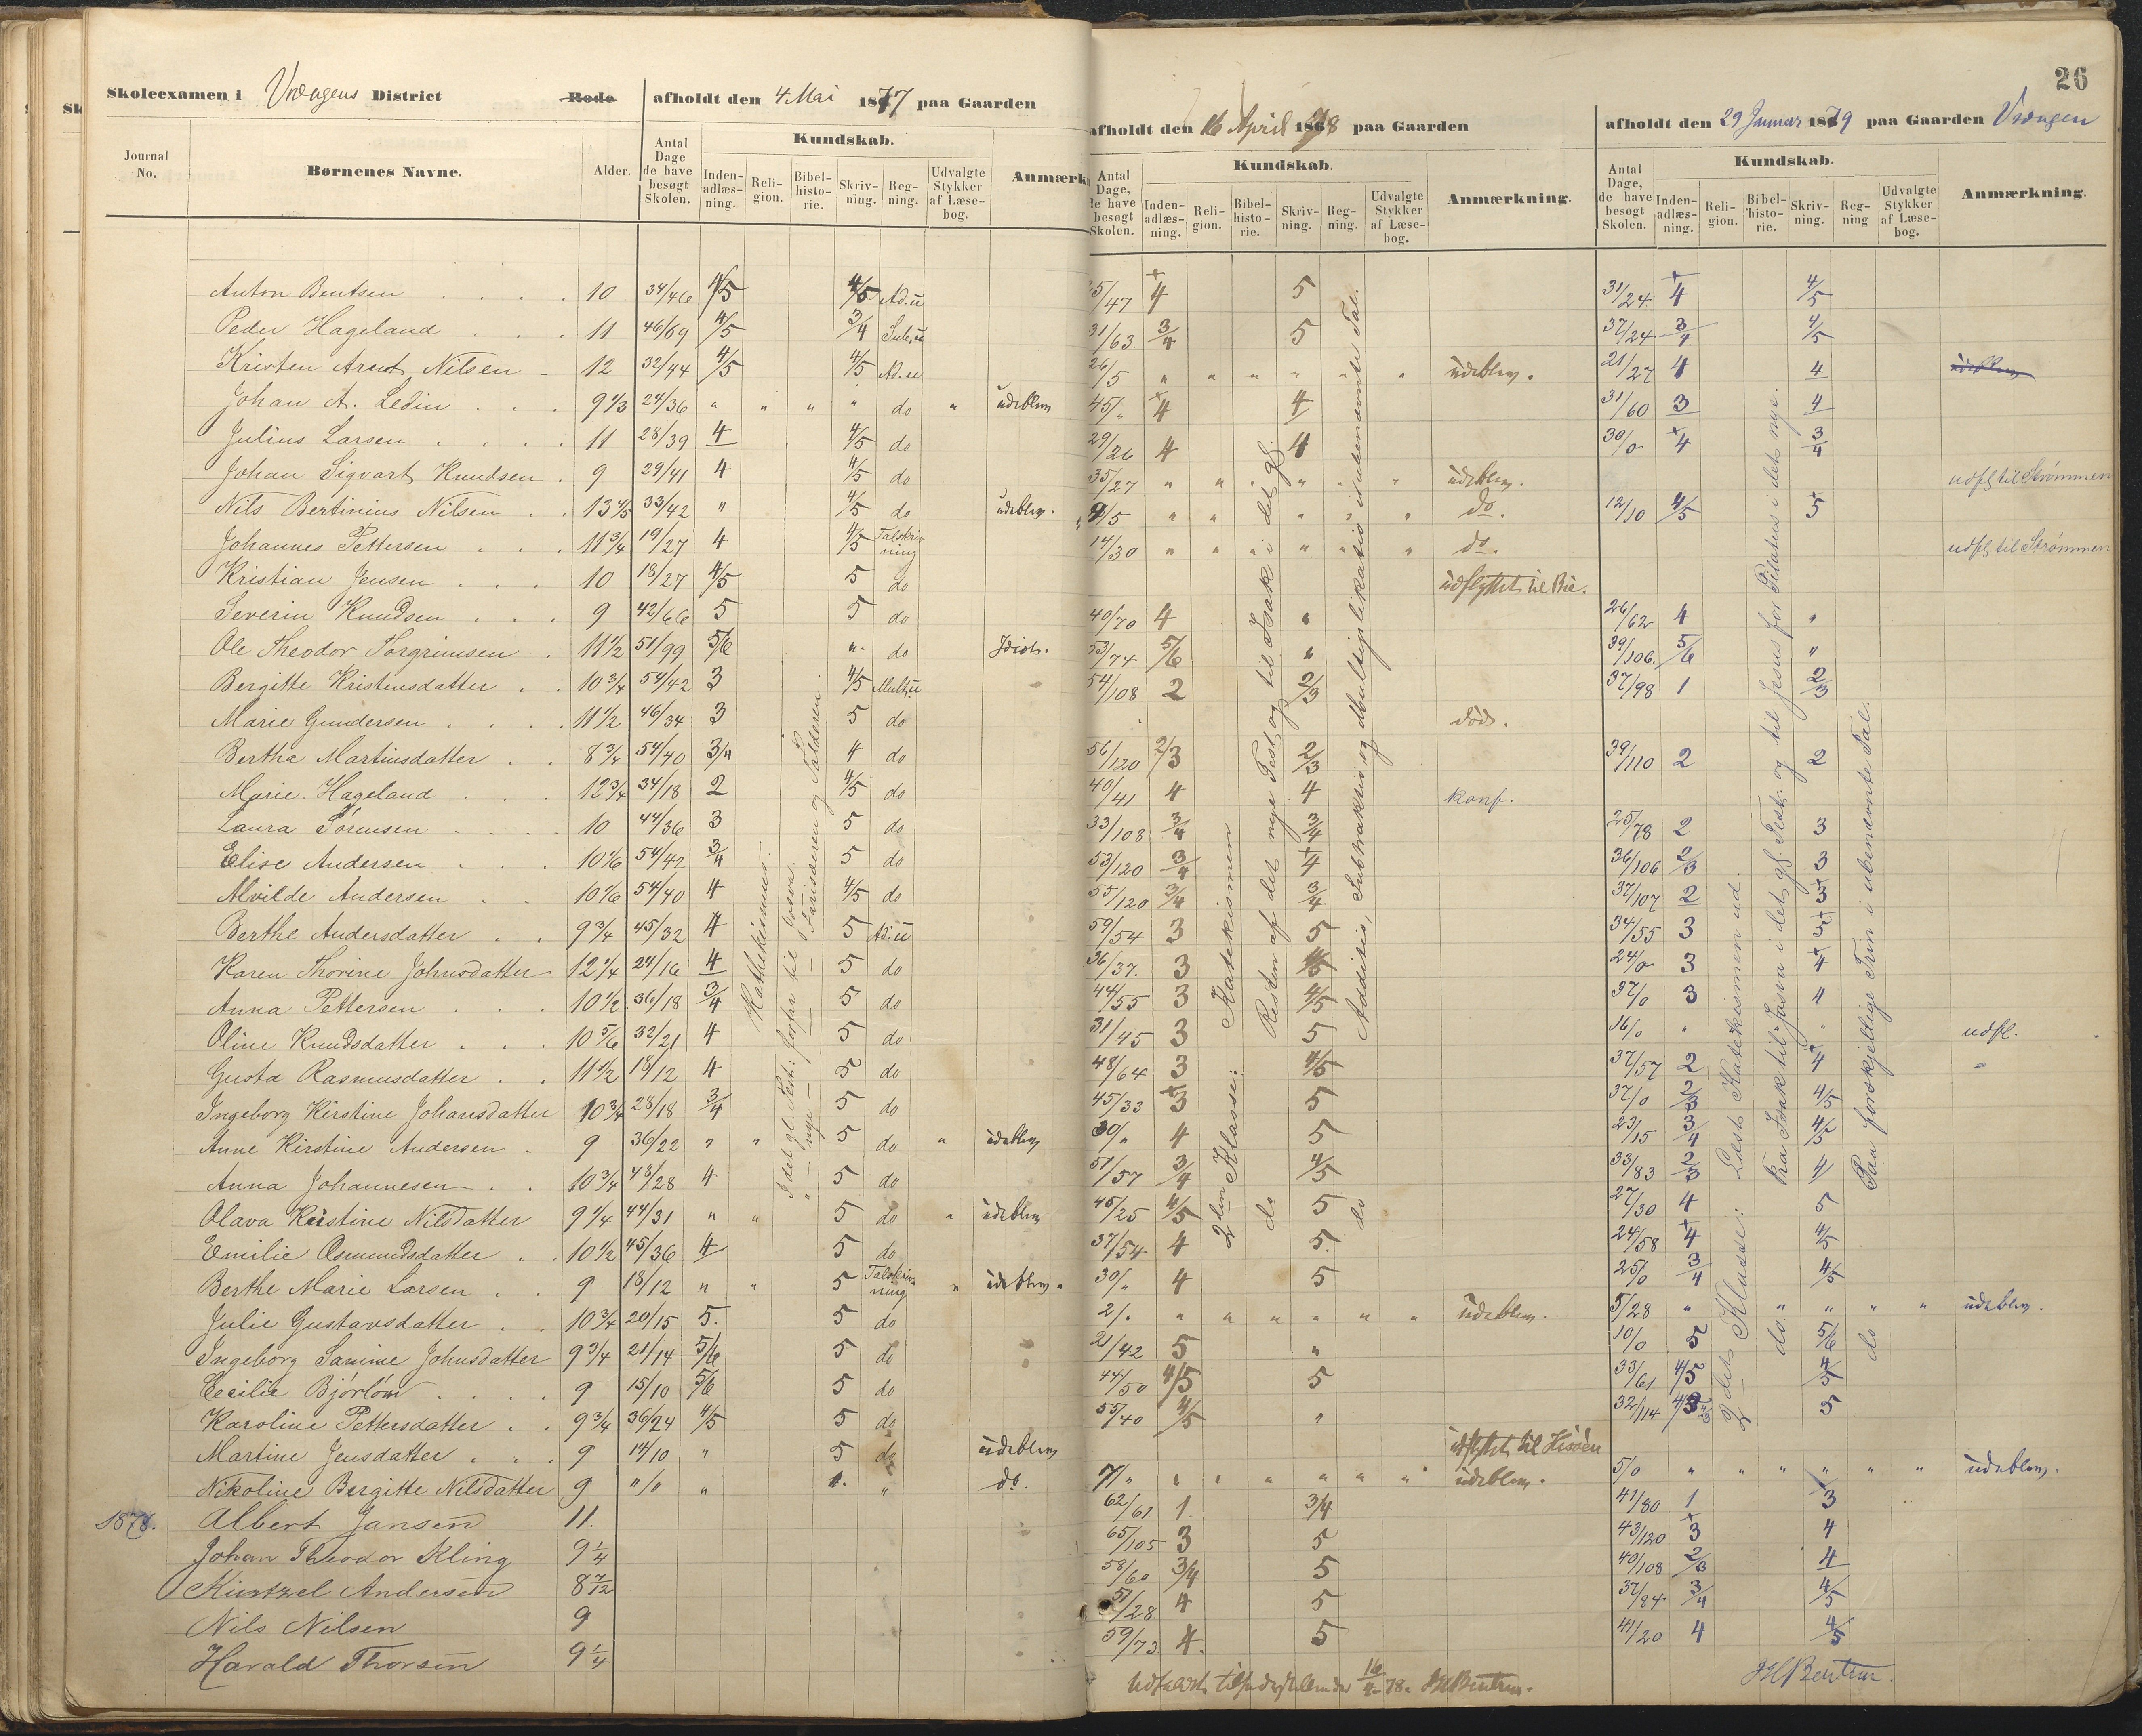 26
Skoleexamen i Vrængens District Rode afholdt den 4. Mai 1877 paa Gaarden
afholdt den 16 April 1878 paa Gaarden
afholdt den 29 Januar 1879 paa Gaarden Vrængen
Journal No. Børnenes Navne. Alder. Antal Dage de have besøgt Skolen. Kundskab. Inden-adlæs-ning. Reli-gion. Bibel-histo-rie. Skriv-ning. Reg-ning. Udvalgte Stykker af Læse-bog. Anmærk
Antal Dage, de have besøgt Skolen. Kundskab. Inden-adlæs-ning. Reli-gion. Bibel-histo-rie. Skriv-ning. Reg-ning. Udvalgte Stykker af Læse-bog. Anmærkning.
Antal Dage, de have besøgt Skolen. Kundskab. Inden-adlæs-ning. Reli-gion. Bibel-histo-rie. Skriv-ning. Reg-ning Udvalgte Stykker af Læse-bog. Anmærkning.
Anton Bentsen 10 34/46 4/5 4/5 Ad.u /47 +4 5 31/24 +4 4/5
Peder Hageland 11 46/69 4/5 3/4 Sub.u 31/63. 3/4 5 37/24 3/4 4/5
Kristen Arent Nilsen 12 32/44 4/5 4/5 Ad.u 26/5 " " " " " " udeblev. 21/27 4 4
Johan A. Ledin 9 1/3 24/36 " " " " do " udeblev 45/" +4 4 31/60 3 4
Julius Larsen 11 28/39 4 4/5 do 29/26 4 4 30/0 +4 3/4
Johan Sigvart Knudsen 9 29/41 4 4/5 do 35/27 " " " " " " udeblev. udfl. til Strømmen
Nils Bertinius Nilsen 13 4/5 33/42 " 4/5 do udeblev. 9/5 " " " " " do. 12/10 4/5 +5
Johannes Pettersen 11 3/4 19/27 4 4/5 Talskrivning 14/30 " " " " " " do. udfl. til Strømmen
Kristian Jensen 10 18/27 4/5 5 do udflyttet til Bie.
Severin Knudsen 9 42/66 5 5 do 40/70 4 " 26/62 4 "
Ole Theodor Torgrimsen 11 1/2 51/99 5/6 " do Idiot. 53/74 5/6 " 39/106. 5/6 "
Bergitte Kristensdatter 10 3/4 54/42 3 4/5 Mult.u 54/108 2 2/3 37/98 1 2/3
Marie Gundersen 11 1/2 46/34 3 5 do død.
Berthe Martinsdatter 8 3/4 54/40 3/4 4 do 56/120 2/3 2/3 39/110 2 2
Marie Hageland 12 3/4 34/18 2 4/5 do 40/41 4 4 konf.
Laura Sörensen 10 44/36 3 5 do 33/108 3/4 3/4 25/78 2 3
Elise Andersen 10 1/6 54/42 3/4 5 do 53/120 3/4 +4 36/106 2/3 3
Alvilde Andersen 10 1/6 54/40 4 4/5 do 55/120 3/4 3/4 37/107 2 +3
Berthe Andersdatter 9 3/4 45/32 4 5 Ad.u 59/54 3 5 34/55 3 +3
Karen Thorine Johnsdatter 12 1/4 24/16 4 5 do 36/37. 3 4/5 24/0 3 +4
Anna Pettersen 10 1/2 36/18 3/4 5 do 44/55 3 4/5 37/0 3 4
Oline Knudsdatter 10 5/6 32/21 4 5 do 31/45 3 5 16/0 " " udfl.
Gusta Rasmusdatter 11 1/2 18/12 4 5 do 48/64 3 4/5 37/57 2 +4
Ingeborg Kirstine Johansdatter 10 3/4 28/18 3/4 5 do 45/33 +3 5 37/0 2/3 4/5
Anne Kirstine Andersen 9 36/22 " " 5 do " udeblev 30/" 4 5 23/15 3/4 4/5
Anna Johannesen 10 3/4 48/28 4 5 do 51/57 3/4 4/5 33/83 2/3 4
Olava Kirstine Nilsdatter 9 1/4 44/31 " " 5 do " udeblev 46/25 4/5 5 27/30 4 5
Emilie Osmundsdatter 10 1/2 45/36 4 5 do 37/54 4 5. 24/58 +4 4/5
Berthe Marie Larsen 9 18/12 " " 5 Talskrivning " udeblev. 30/" 4 5 25/0 3/4 4/5
Julie Gustavsdatter 10 3/4 20/15 5. 5 do 2/" " " " " " " udeblev. 5/28 " " " " " udeblev.
Ingeborg Samine Johnsdatter 9 3/4 21/14 5/6 5 do 21/42 5 " 10/0 5 5/6
Cecilie Bjørløw 9 15/10 5/6 5 do 44/50 4/5 5 33/61 4/5 4/5
Karoline Pettersdatter 9 3/4 36/24 4/5 5 do 55/40 4/5 " 32/114 5
Martine Jensdatter 9 14/10 " 5 do udeblev udflyttet til Hisøen
Nikoline Bergitte Nilsdatter 9 "/" " " do. 7/" " " " " " " udeblev. 5/0 " " " " " " udeblev.
1878. Albert Jansen 11. 62/61 1. 3/4 41/80 1 3
Johan Theodor Kling 9 1/4 65/105 3 5 43/120 +3 4
Kintzel Andersen 8 7/12 58/60 3/4 5 40/108 2/3 4
Nils Nilsen 9 51/28 4 5 37/84 3/4 4/5
Harald Thorsen 9 1/4 59/73 4. 5 41/20 4 4/5
Kathekismus.
I det gl. Test: forfra til Josva.
" — nye — " — Farisæeren og Tolderen.
2den Klasse: Katekismen
do Resten af det nye Test. og til Isak i det gl.
do Addition, Subtraktion og Multiplikation i ubenævnte Tal.
2det Klasse: Læst Katekismen ud.
do. Fra Isak til Josva i det gl. Test. og til Jesus for Pilatus i det nye.
do Paa forskjellige Trin i ubenævnte Tal.
16/4 78. JHBentsen.
JHBentsen.